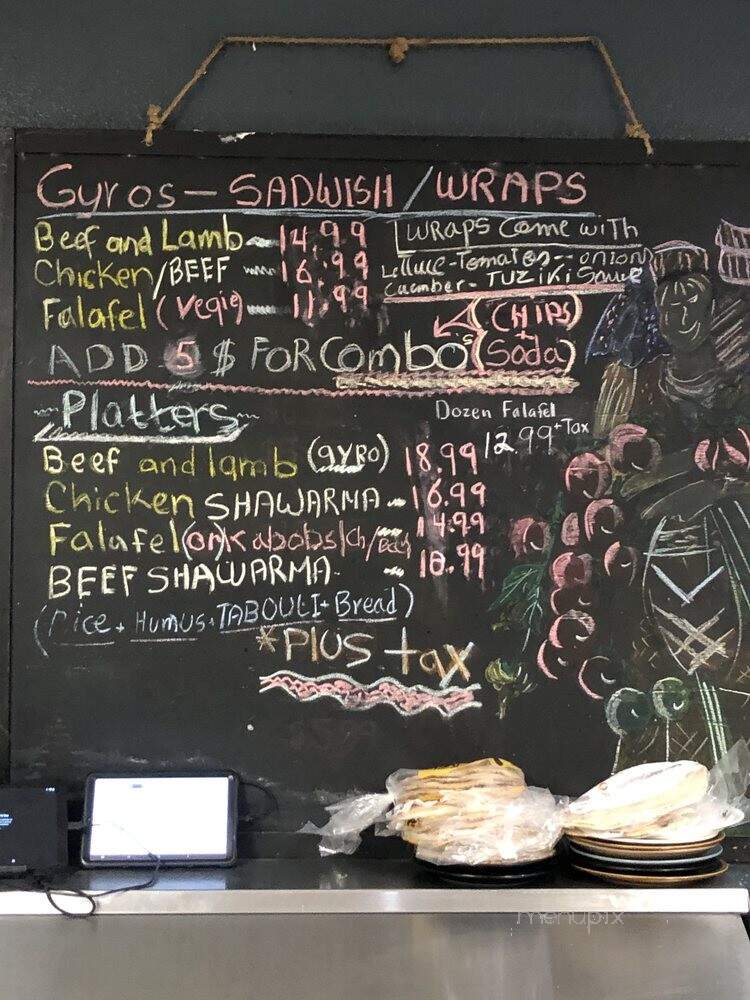 Gyros - SADWISH / WRAPS
Beef and Lamb - 14.99
Chicken/BEEF - 16.99
Falafel (Vegie) - 11.99
WRAPS Come with
Lettuce - Tomatos - onion
Cucmber - TUZIKI Sauce
ADD 5 $ FOR Combo's (CHIPS + Soda)
Platters
Dozen Falafel
12.99 + Tax
Beef and lamb (gyro) 18.99
Chicken SHAWARMA - 16.99
Falafel (or) Kabobs | Ch/Beef 14.99
BEEF SHAWARMA - 18.99
(Rice + Humus + TABOULI + Bread)
*PLUS tax
menupix